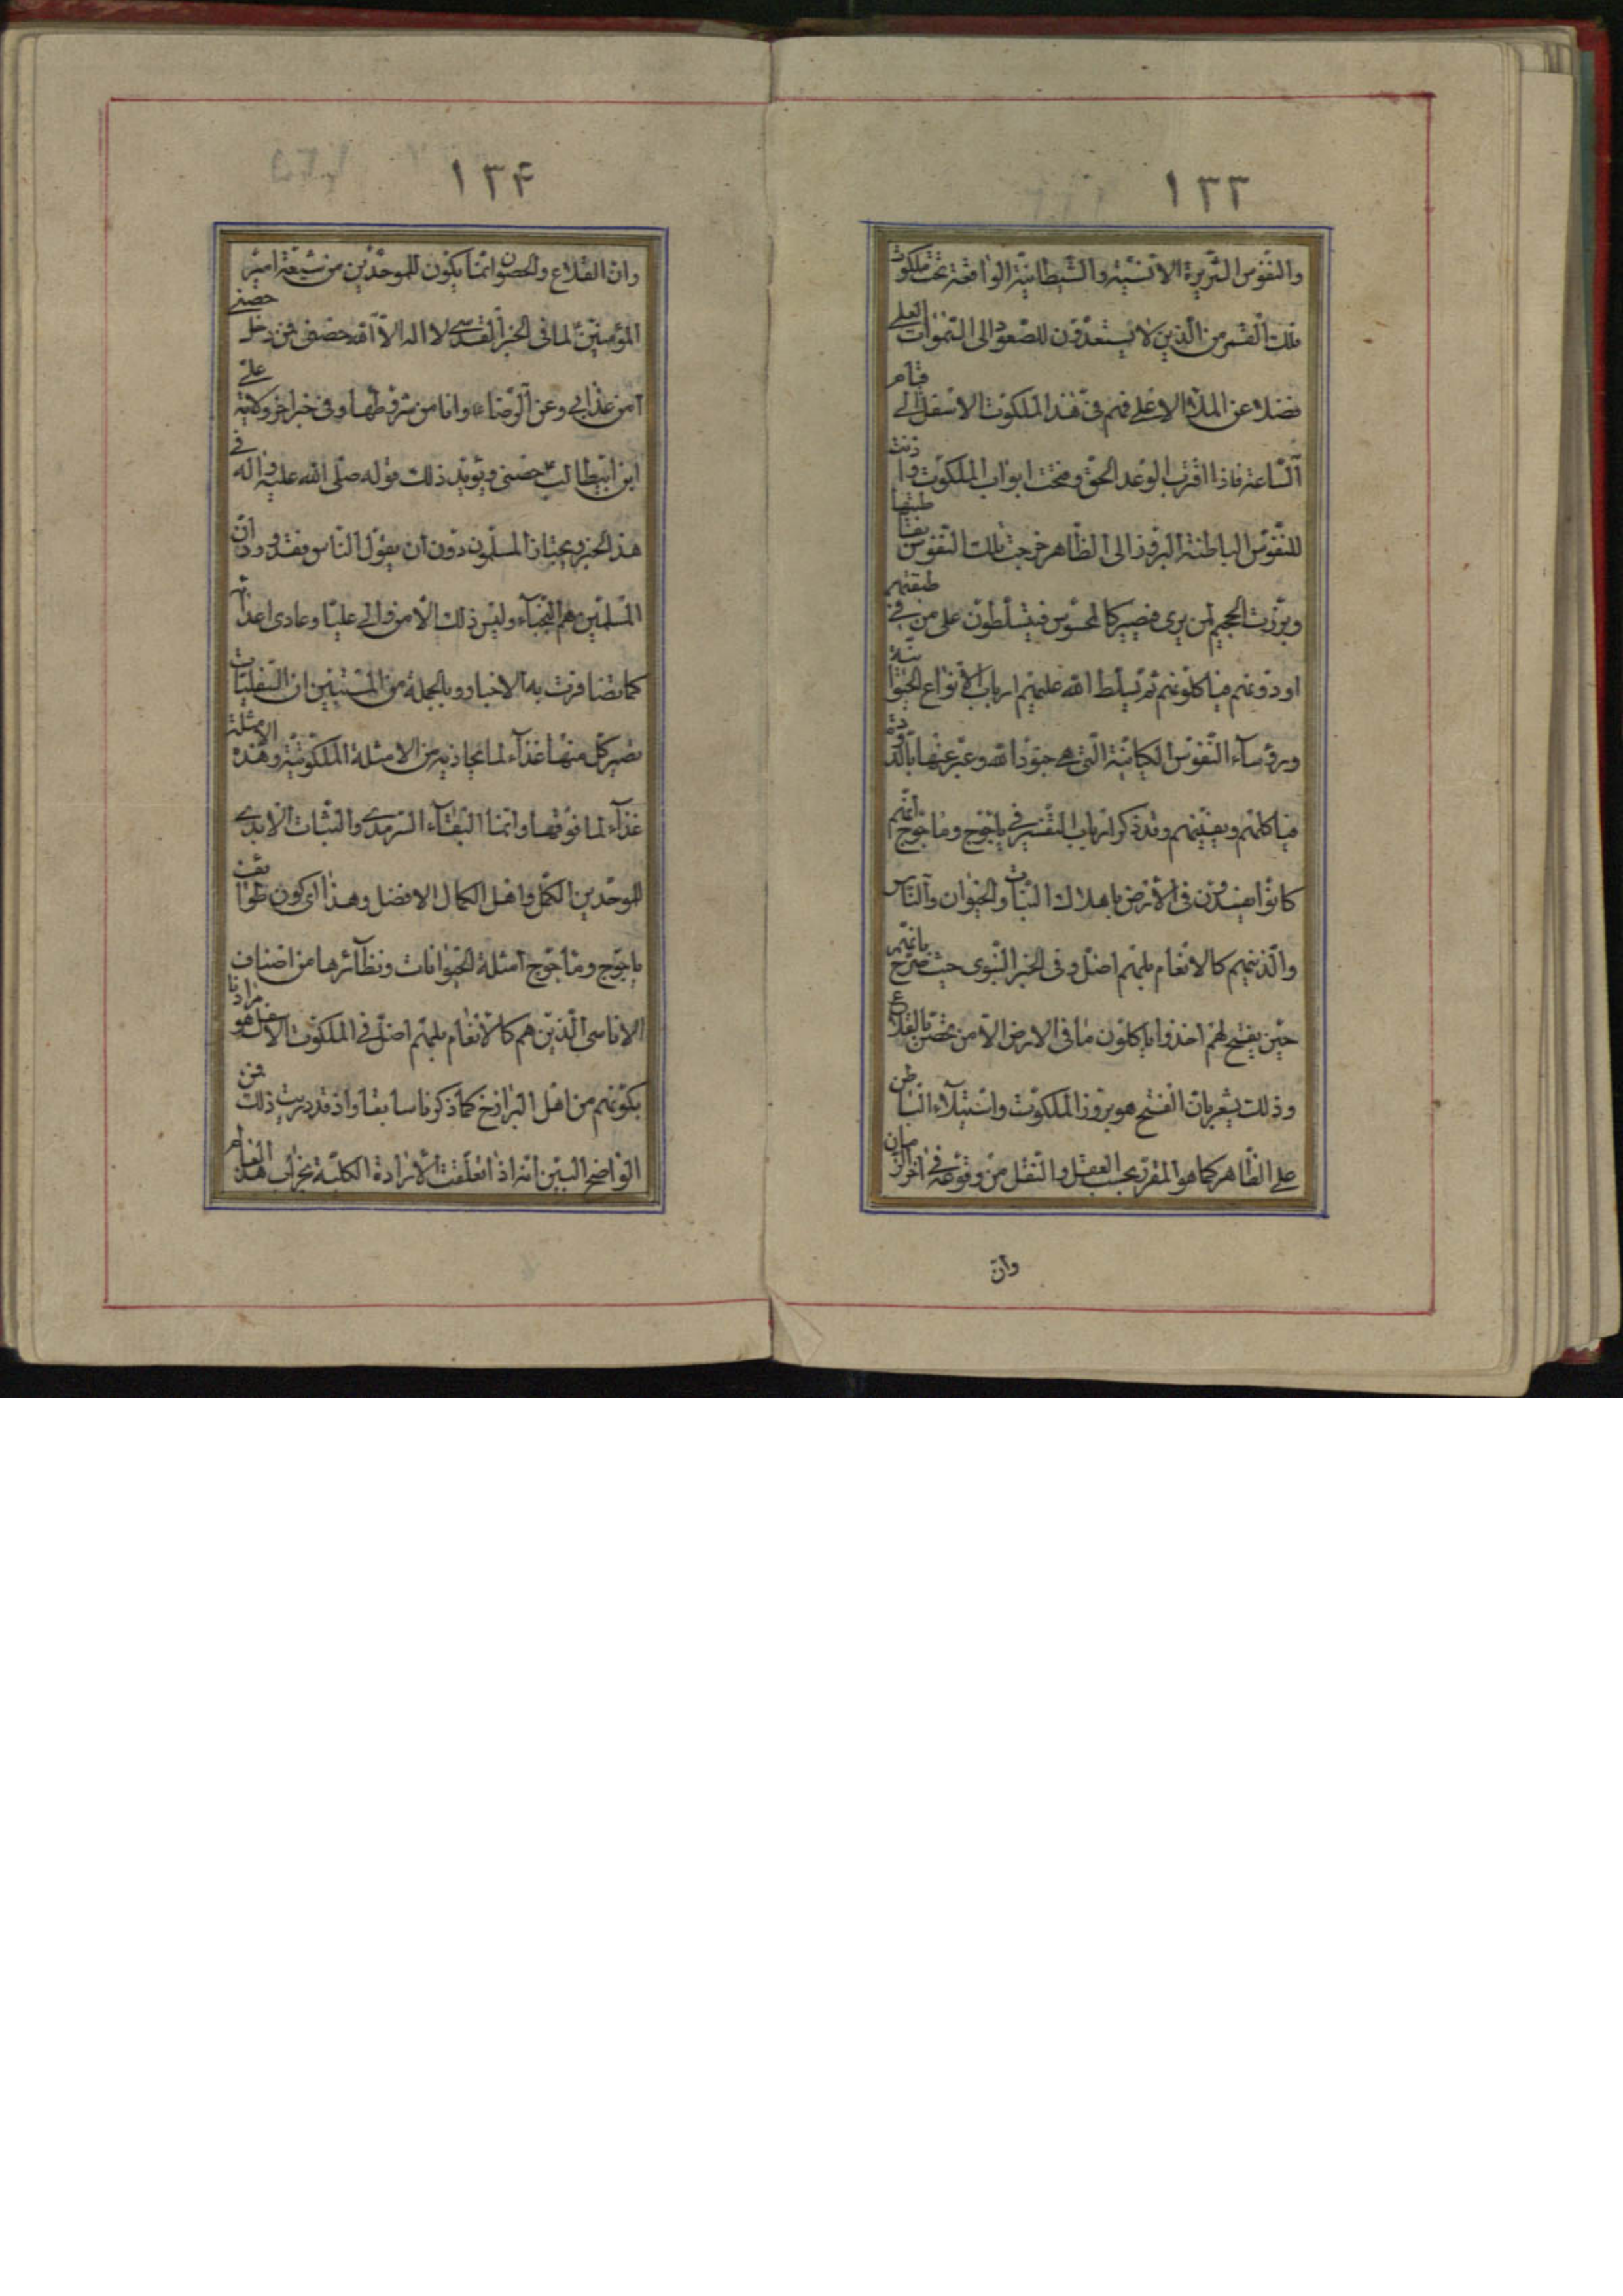 ١٣٣
والنفوس الشريرة الانسيّة والشيطانيّة الواقعة تحت ملكوت
فلك القمر من الّذين لا يستعدّون للصّعود الى السّموات العلى
فضلا عن الملاء الاعلى فهم فى هذا الملكوت الاسفل الى قيام
السّاعة فاذا اقترب الوعد الحقّ وفتحت ابواب الملكوت واذنت
للنّفوس الباطنة البروز الى الظّاهر خرجت تلك النّفوس
وبرّزت الجحيم لمن يرى فيصير كالمحسوس فيتسلّطون على من فى طبقتهم
او دونهم فياكلونهم ثم تسلّط الله عليهم ارباب الانواع الحيوا نيّة
ورؤساء النّفوس الكيانيّة الّتى هى جنود الله وعبّر عنها بالدّ
فياكلهم ويفنيهم وقد ذكر ارباب التفسير فى ياجوج وماجوج انّهم
كانوا يفسدون فى الارض باهلاك النّبات والحيوان والنّاس
والّذينهم كالانعام بل هم اضلّ وفى الخبر النّبوى حيث صرّح بانّهم
حين يفتح لهم اخذوا ياكلون ما فى الارض الّا من تحصّن بالقلاع
وذلك يشعر بانّ الفتح هو بروز الملكوت واستيلاء الباطن
على الظّاهر كما هو المقرّر بحسب العقل والنّقل من وقوعه فى اخر الزّمان
وانّ
١٣۴
وانّ القلاع والحصون انّما يكون للموحّدين من شيعة امير
المؤمنين لما فى الخبر القدسى لا اله الّا الله حصنى فمن دخل حصنى
امن عذابى وعن الرّضا ع وانا من شروطها وفى خبر اخر ولاية علىّ
ابن ابيطالب حصنى ويؤيد ذلك قوله صلّى الله عليه واله فى
هذا الخبر ويحتاز المسلمون دون ان يقول النّاس فقد ورد انّ
المسلمين هم النّجباء وليس ذلك الّا من والى عليّا وعادى اعدائه
كما تضافرت به الاخبار وبالجملة من المستبين ان السّفليّات
تصير كلّ منها غذاء لما يحاذيه من الامثلة الملكوتيّة وهذه الامثلة
غذاء لما فوقها وانّما البقاء السّرمدى والثّبات الابدى
للموحّدين الكمّل واهل الكمال الافضل وهذا اى كون طوائف
ياجوج وماجوج امثلة الحيوانات ونظائرها من اصناف
الاناسى الّذين هم كالانعام بل هم اضلّ فى الملكوت الاسفل هو مرادنا
بكونهم من اهل البرازخ كما ذكرنا سابقا واذ قد دريت ذلك فمن
الواضح البيّن انّه اذا تعلّقت الارادة الكليّة بخراب هذا العالم